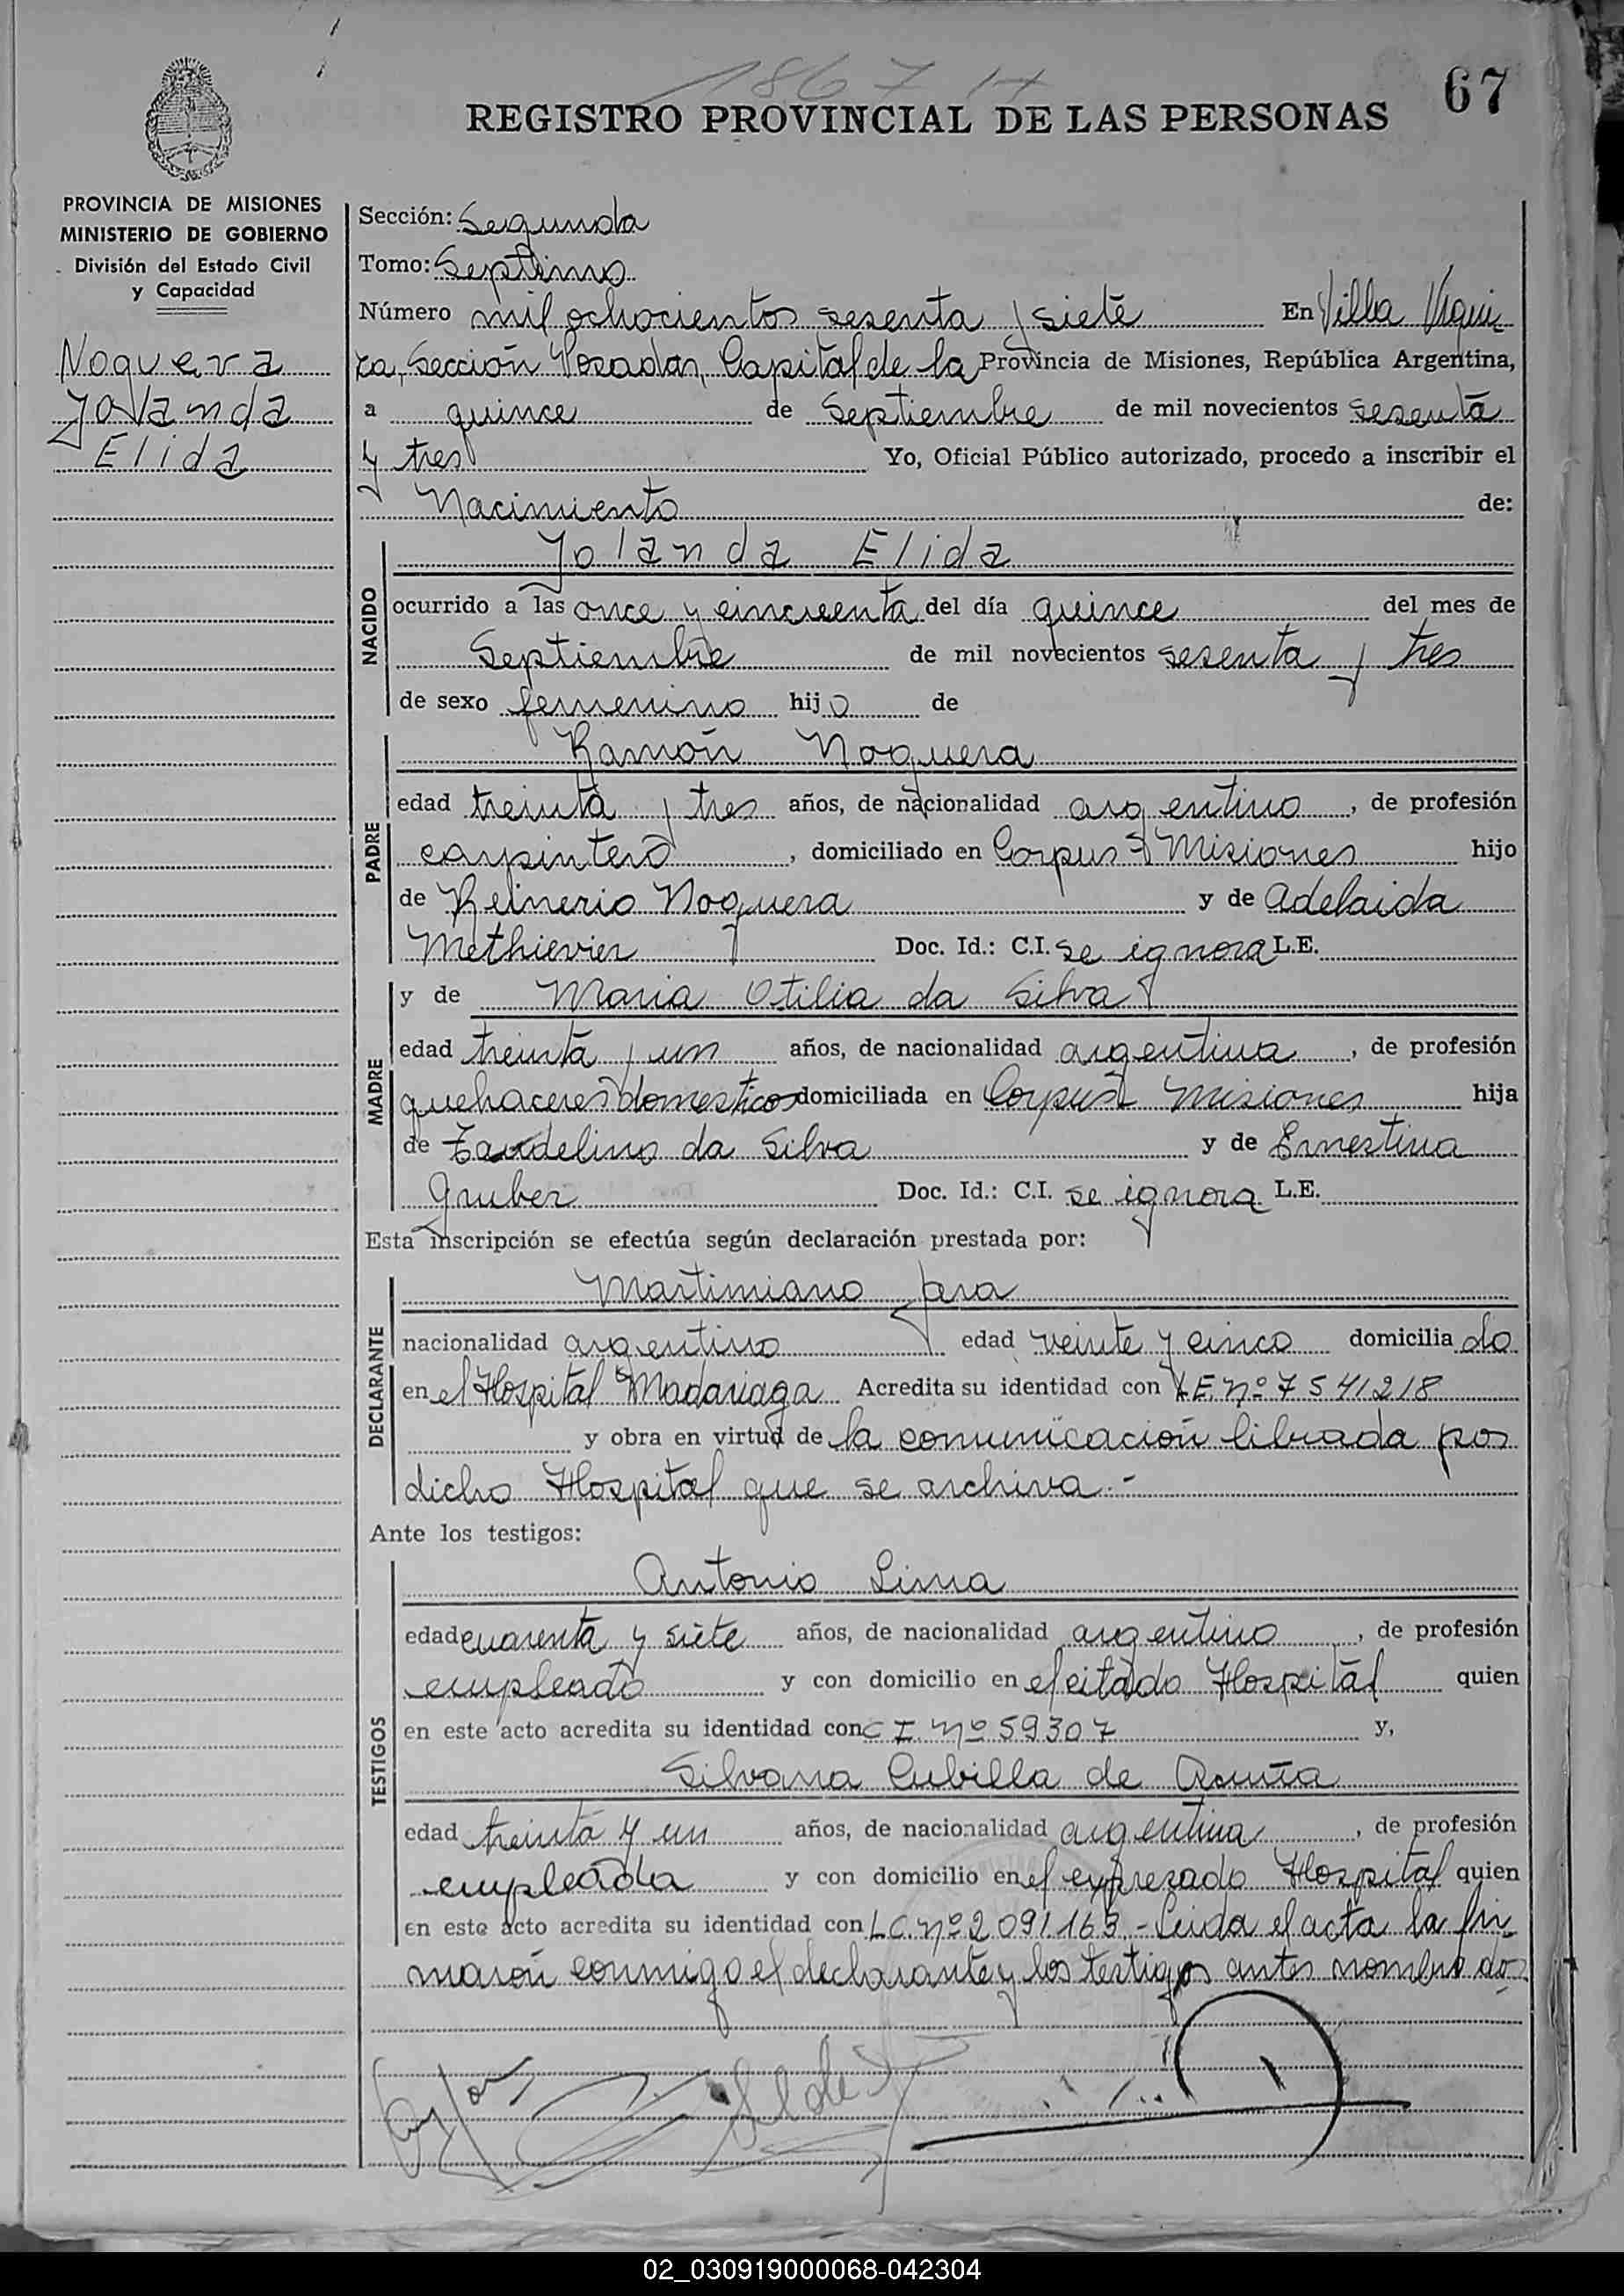 1867
67
REGISTRO PROVINCIAL DE LAS PERSONAS
PROVINCIA DE MISIONES
MINISTERIO DE GOBIERNO
División del Estado Civil
y Capacidad
Noguera
Yolanda
Elida
Sección: Segunda
Tomo: Septimo
Número mil ochocientos sesenta y siete En Villa Urqui
za, Sección Posadas, Capital de la Provincia de Misiones, República Argentina,
a quince de Septiembre de mil novecientos sesenta
y tres Yo, Oficial Público autorizado, procedo a inscribir el
Nacimiento de:
NACIDO
Yolanda Elida
ocurrido a las once y cincuenta del día quince del mes de
Septiembre de mil novecientos sesenta y tres
de sexo femenino hijo de
PADRE
Ramón Noguera
edad treinta y tres años, de nacionalidad argentino, de profesión
carpintero, domiciliado en Corpus - Misiones hijo
de Reinerio Noguera y de Adelaida
Methievier Doc. Id.: C.I. se ignora L.E.
MADRE
y de Maria Otilia da Silva
edad treinta y un años, de nacionalidad argentina, de profesión
quehaceres domesticos domiciliada en Corpus Misiones hija
de da Silva y de Ernestina
Gruber Doc. Id.: C.I. se ignora L.E.
Esta inscripción se efectúa según declaración prestada por:
DECLARANTE
Martimiano Jara
nacionalidad argentino edad veinte y cinco domiciliado
en el Hospital Madariaga Acredita su identidad con L.E. Nº 7541218
y obra en virtud de la comunicación librada por
dicho Hospital que se archiva.-
Ante los testigos:
TESTIGOS
Antonio Lima
edad cuarenta y siete años, de nacionalidad argentino, de profesión
empleado y con domicilio en el citado Hospital quien
en este acto acredita su identidad con C I Nº 59307 y,
Silvana Cubilla de Acuña
edad treinta y un años, de nacionalidad argentina, de profesión
empleada y con domicilio en el expresado Hospital quien
en este acto acredita su identidad con L.C. Nº 2.091.163.- Leida el acta la fir
maron conmigo el declarante y los testigos antes nombrados
02_030919000068-042304